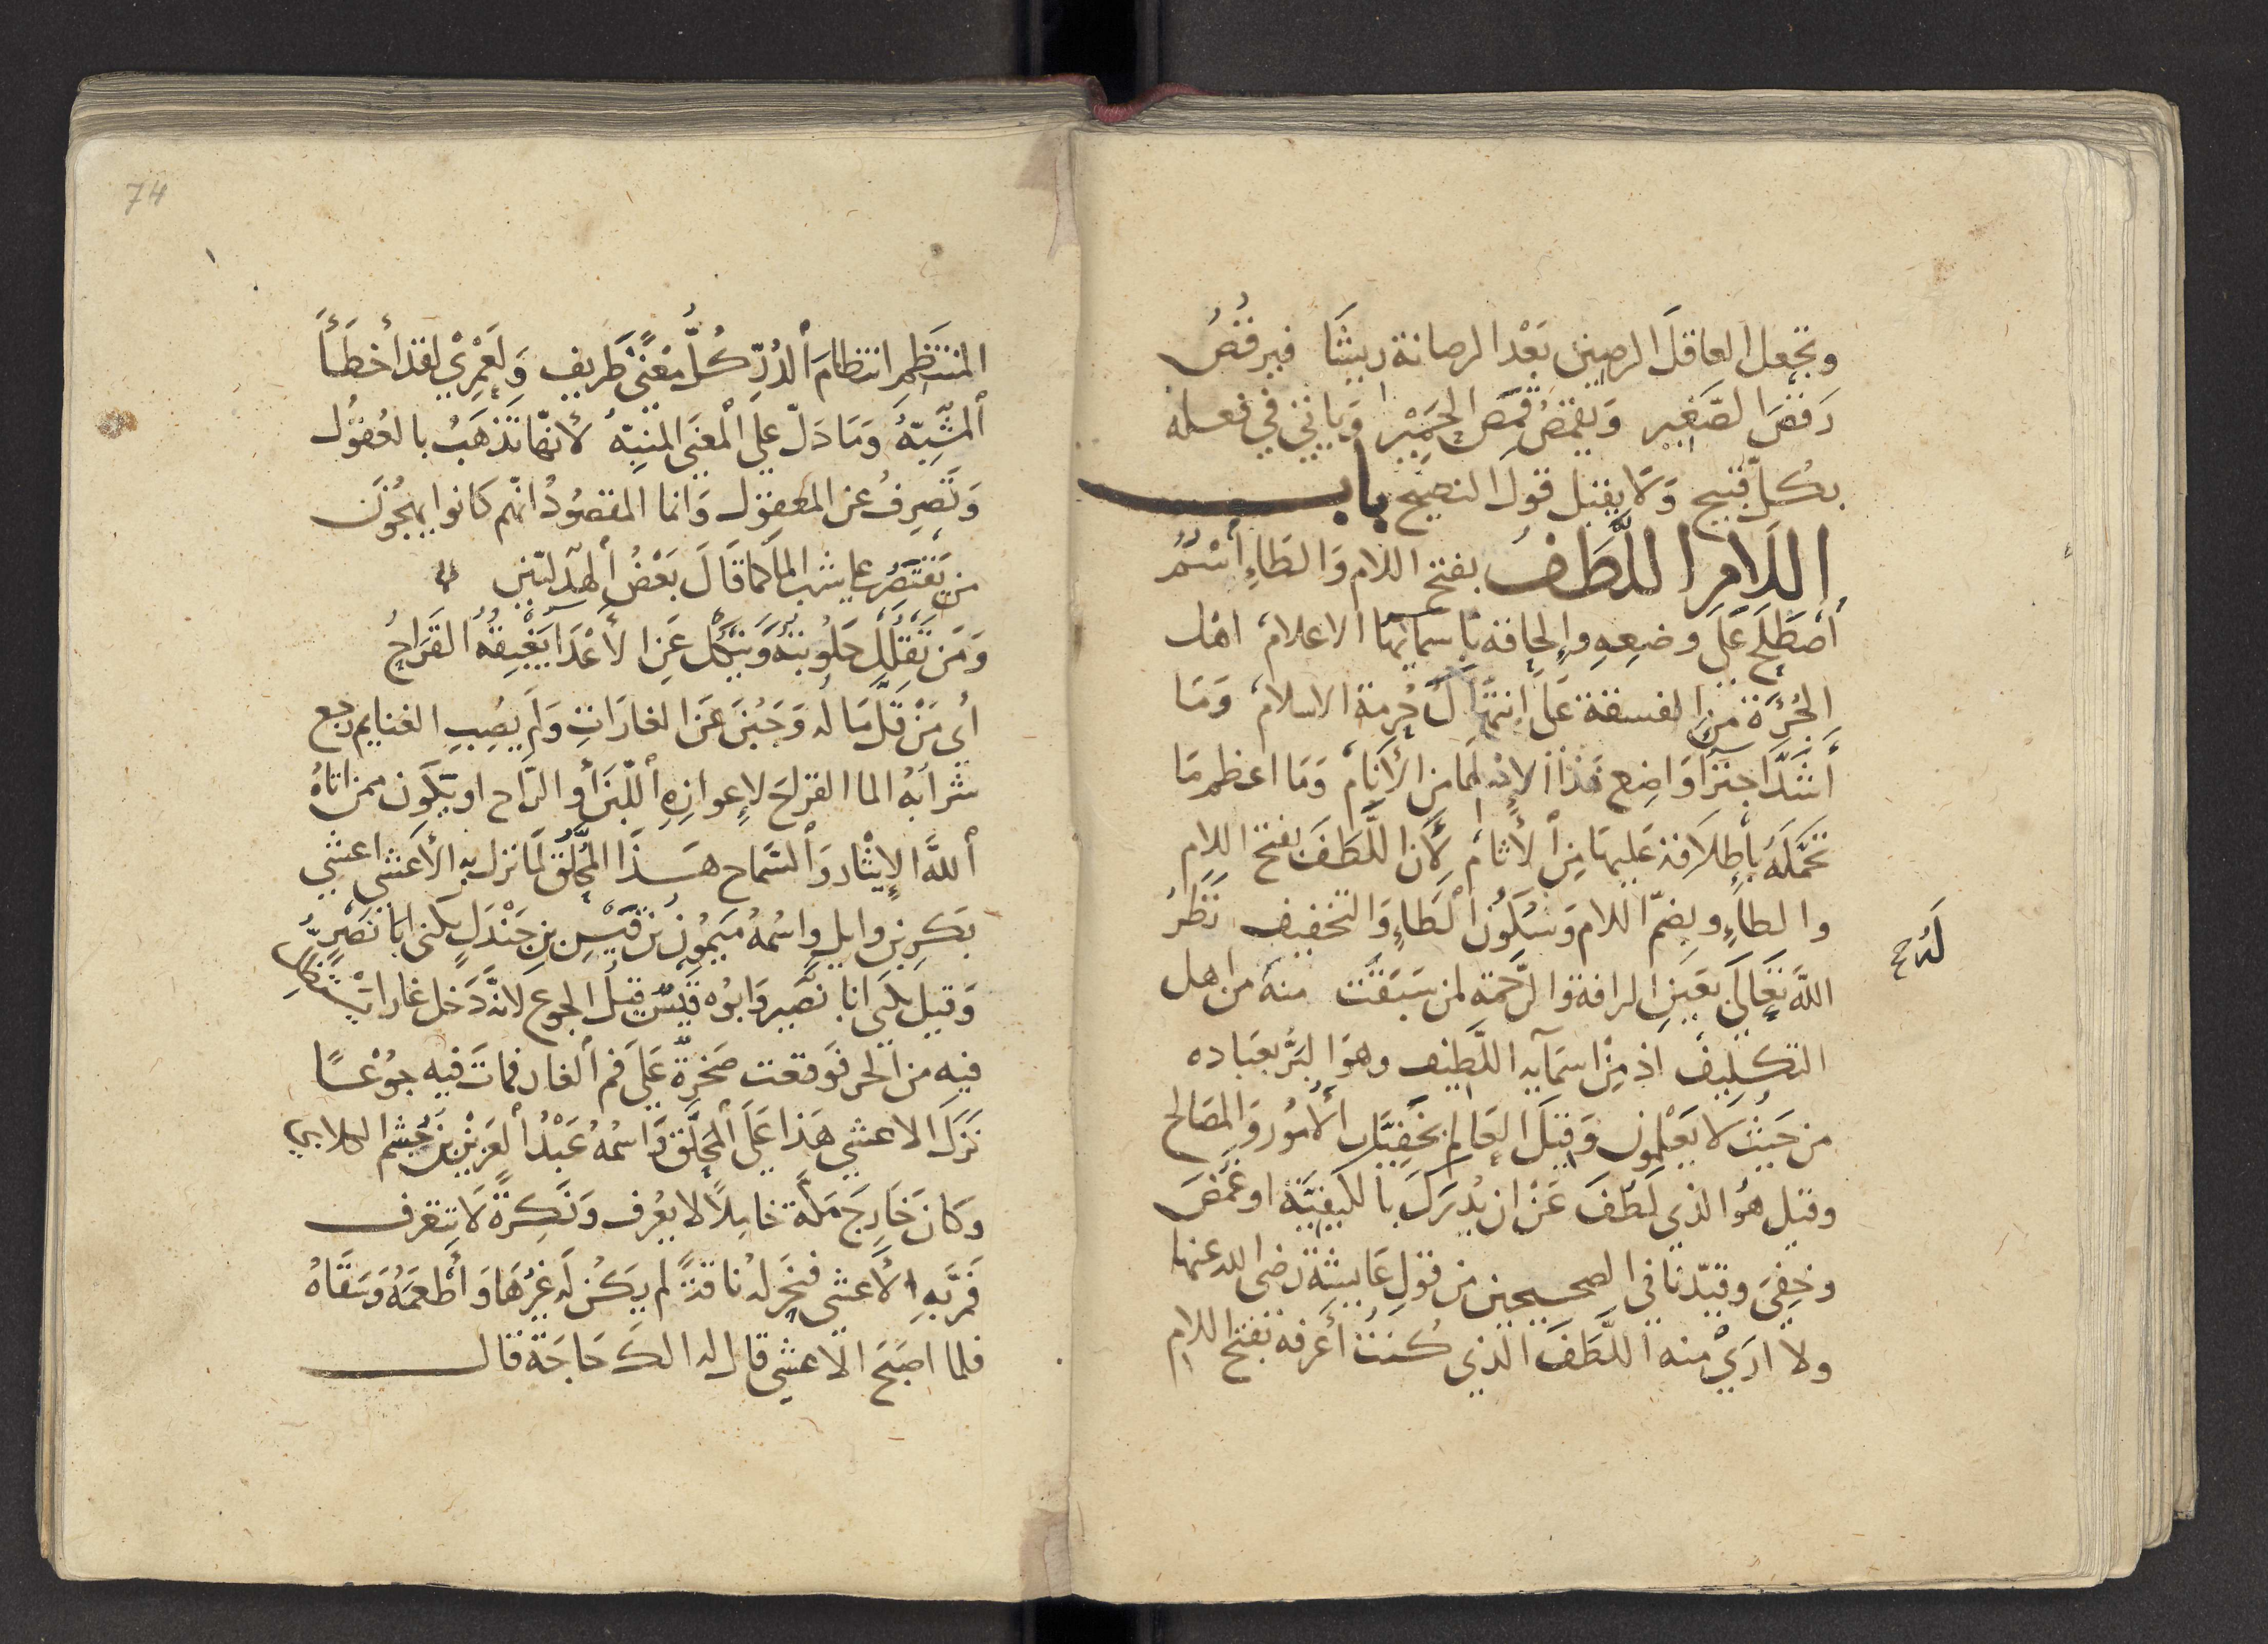 وتجعل العاقلَ الرصين بَعْد الرصانة ربيثًا فيرقُصُ
رَقصَ الصَغير وَيقمُصُ قمَص الحَمِيْر وَياتي في فعله
بكُل قبيح وَلا يقبل قول النصيح باب
اللام اللَّطَف بفتح اللام وَالطاءِ أسْمٌ
أصْطَلحَ عَلَى وضعِهِ وإلحاقه باسمائها الاعلام، اهل
الجُرْءَة من الفسقة عَلى انتهاك حُرمة الاسلام، وَمَا
أشَدَّ اجترَا وَاضِع هَذا الاسْم لها من الأنَام، وَمَا اعظم مَا
تحَمَّلَهُ بأطلاقه عَليها مِن الأثام، لأن اللَّطَفَ بفتح اللام
والطاءِ وبضمّ اللام وَسُكُون الطاءِ وَالتخفيف نَظَرُ
الله تَعَالَى بعَين الرافة والرَّحمة لمن سَبَقَت منه من اهل
لَهُ ح
التكليف اذ مِنْ اسمَآيه اللَّطيف وهوَ البَرُّ بعبَاده
من حَيثُ لا يَعْلمون وَقيل العَالِم بخَفِيَّات الأمُور وَالمصَالح
وقيل هُوَ الذي لَطُفَ عَنْ ان يُدرَكَ بالكيفيَّة او غَمُضَ
وخفِيَ وقيّدنا في الصحيحين من قولِ عَايشة رضى الله عنها
ولا اريْ منه اللَّطَفَ الذي كُنتُ أعرفه بفتح اللام
74
المنتَظِم انتظامَ الدُرّ كُلُّ مَعْنًى ظَريف وَلَعَمْرِيْ لقد أخطَأَ
المشَبِّهُ وَمَا دَلّ على المعنَى المنبِّهُ لأنهَا تَذهَبُ بالعُقوُل
وَتَصرِفُ عن المعقوُل وَانما المقصُودُ انّهم كانوا يهجُون
من يَقتَصِرُ على شرب الما كما قَالَ بَعْضُ الهذليّين
وَمَن تَقلِل حَلُوبتهُ وَيَنكل عَن الأعْدَا يَغْبِقُهُ القَرَاحُ
أي مَنْ قَلّ مَالُه وَجَبُنَ عَن الغارَاتِ وَلم يصِبِ الغنايم رجع
شرابُهُ الما القراحَ لإعوازه اللّبنَ أو الرّاح او يكون ممن اتاهُ
الله الإيثار وَالسّماح هَذَا المُحلَّق لمَا نزل به الأعشى اعشي
بَكر بن وايلٍ واسْمُهُ مَيمُون بن قيْس بن جَنْدَلٍ يكنى ابا نصْرٍ
وَقيل يكنَى ابا بَصَير وَابُوه قيس قتيل الجوع لانهُ دَخل غارا
فيه من الحر فوَقعت صَخرةٌ عَلى فم الغار فماتَ فيه جوُعًا
نزلَ الاعشي هَذا عَلَى المحَلَّق وَاسمُهُ عَبْدُ العَزيْز بن حشم الكلابي
وكانَ خَارِجَ مَكّة خامِلاً لا يعْرف وَنَكِرَةً لا يتعرف
فَمرَّ بِهِ الأعشى فنحَر لهُ ناقةً لم يكُن لَه غيْرُهَا وَأطْعمَهُ وَسَقَاهُ
فلما اصْبَحَ الاعشي قال له الكَ حَاجَة قال